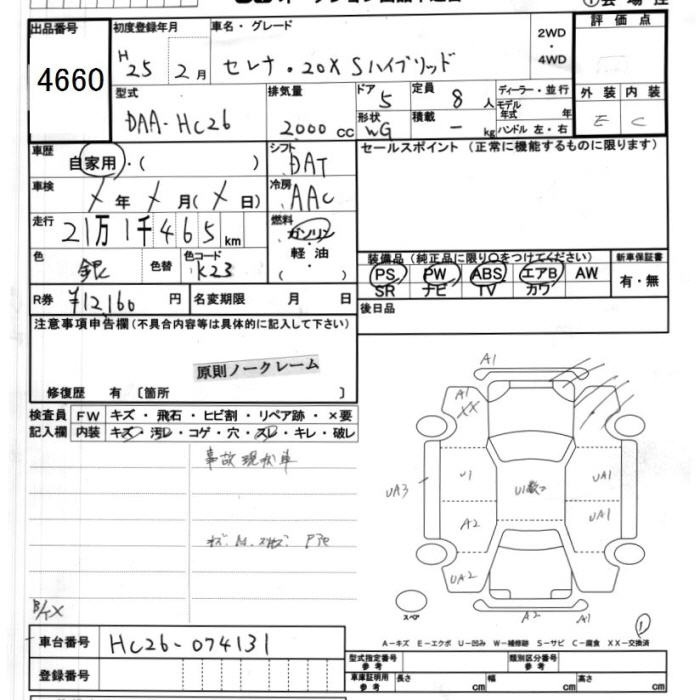 ①会場
出品番号
4660
初度登録年月
H25 2月
車名・グレード
セレナ・20X Sハイブリッド
2WD
・
4WD
評価点
型式
DAA-HC26
排気量
2000 CC
ドア
5
形状
WG
定員
8 人
積載
- kg
ディーラー・並行
モデル年式 年
ハンドル 左・右
外装 内装
E C
車歴
自家用・( )
シフト
DAT
車検
年 月( 日)
冷房
AAC
走行
21万1千465km
燃料
ガソリン
・
軽油
・
( )
色
銀
色替
色コード
K23
R券 ¥12,160 円
名変期限 月 日
セールスポイント (正常に機能するものに限ります)
装備品(純正品に限り○をつけてください)
新車保証書
PS PW ABS エアB AW
SR ナビ TV カワ
有・無
後日品
注意事項申告欄(不具合内容等は具体的に記入して下さい)
原則ノークレーム
修復歴 有〔箇所 〕
検査員
記入欄
FW キズ・飛石・ヒビ割・リペア跡・×要
内装 キズ・汚レ・コゲ・穴・スレ・キレ・破レ
事故現状車
A1
A1
XX
UA3
U1
A2
UA2
U1数コ
UA1
UA1
A2
A1
スペア
①
A−キズ E−エクボ U−凹み W−補修跡 S−サビ C−腐食 XX−交換済
車台番号
HC26-074131
登録番号
型式指定番号
参考
類別区分番号
参考
車庫証明用
参考
長さ cm
幅 cm
高さ cm